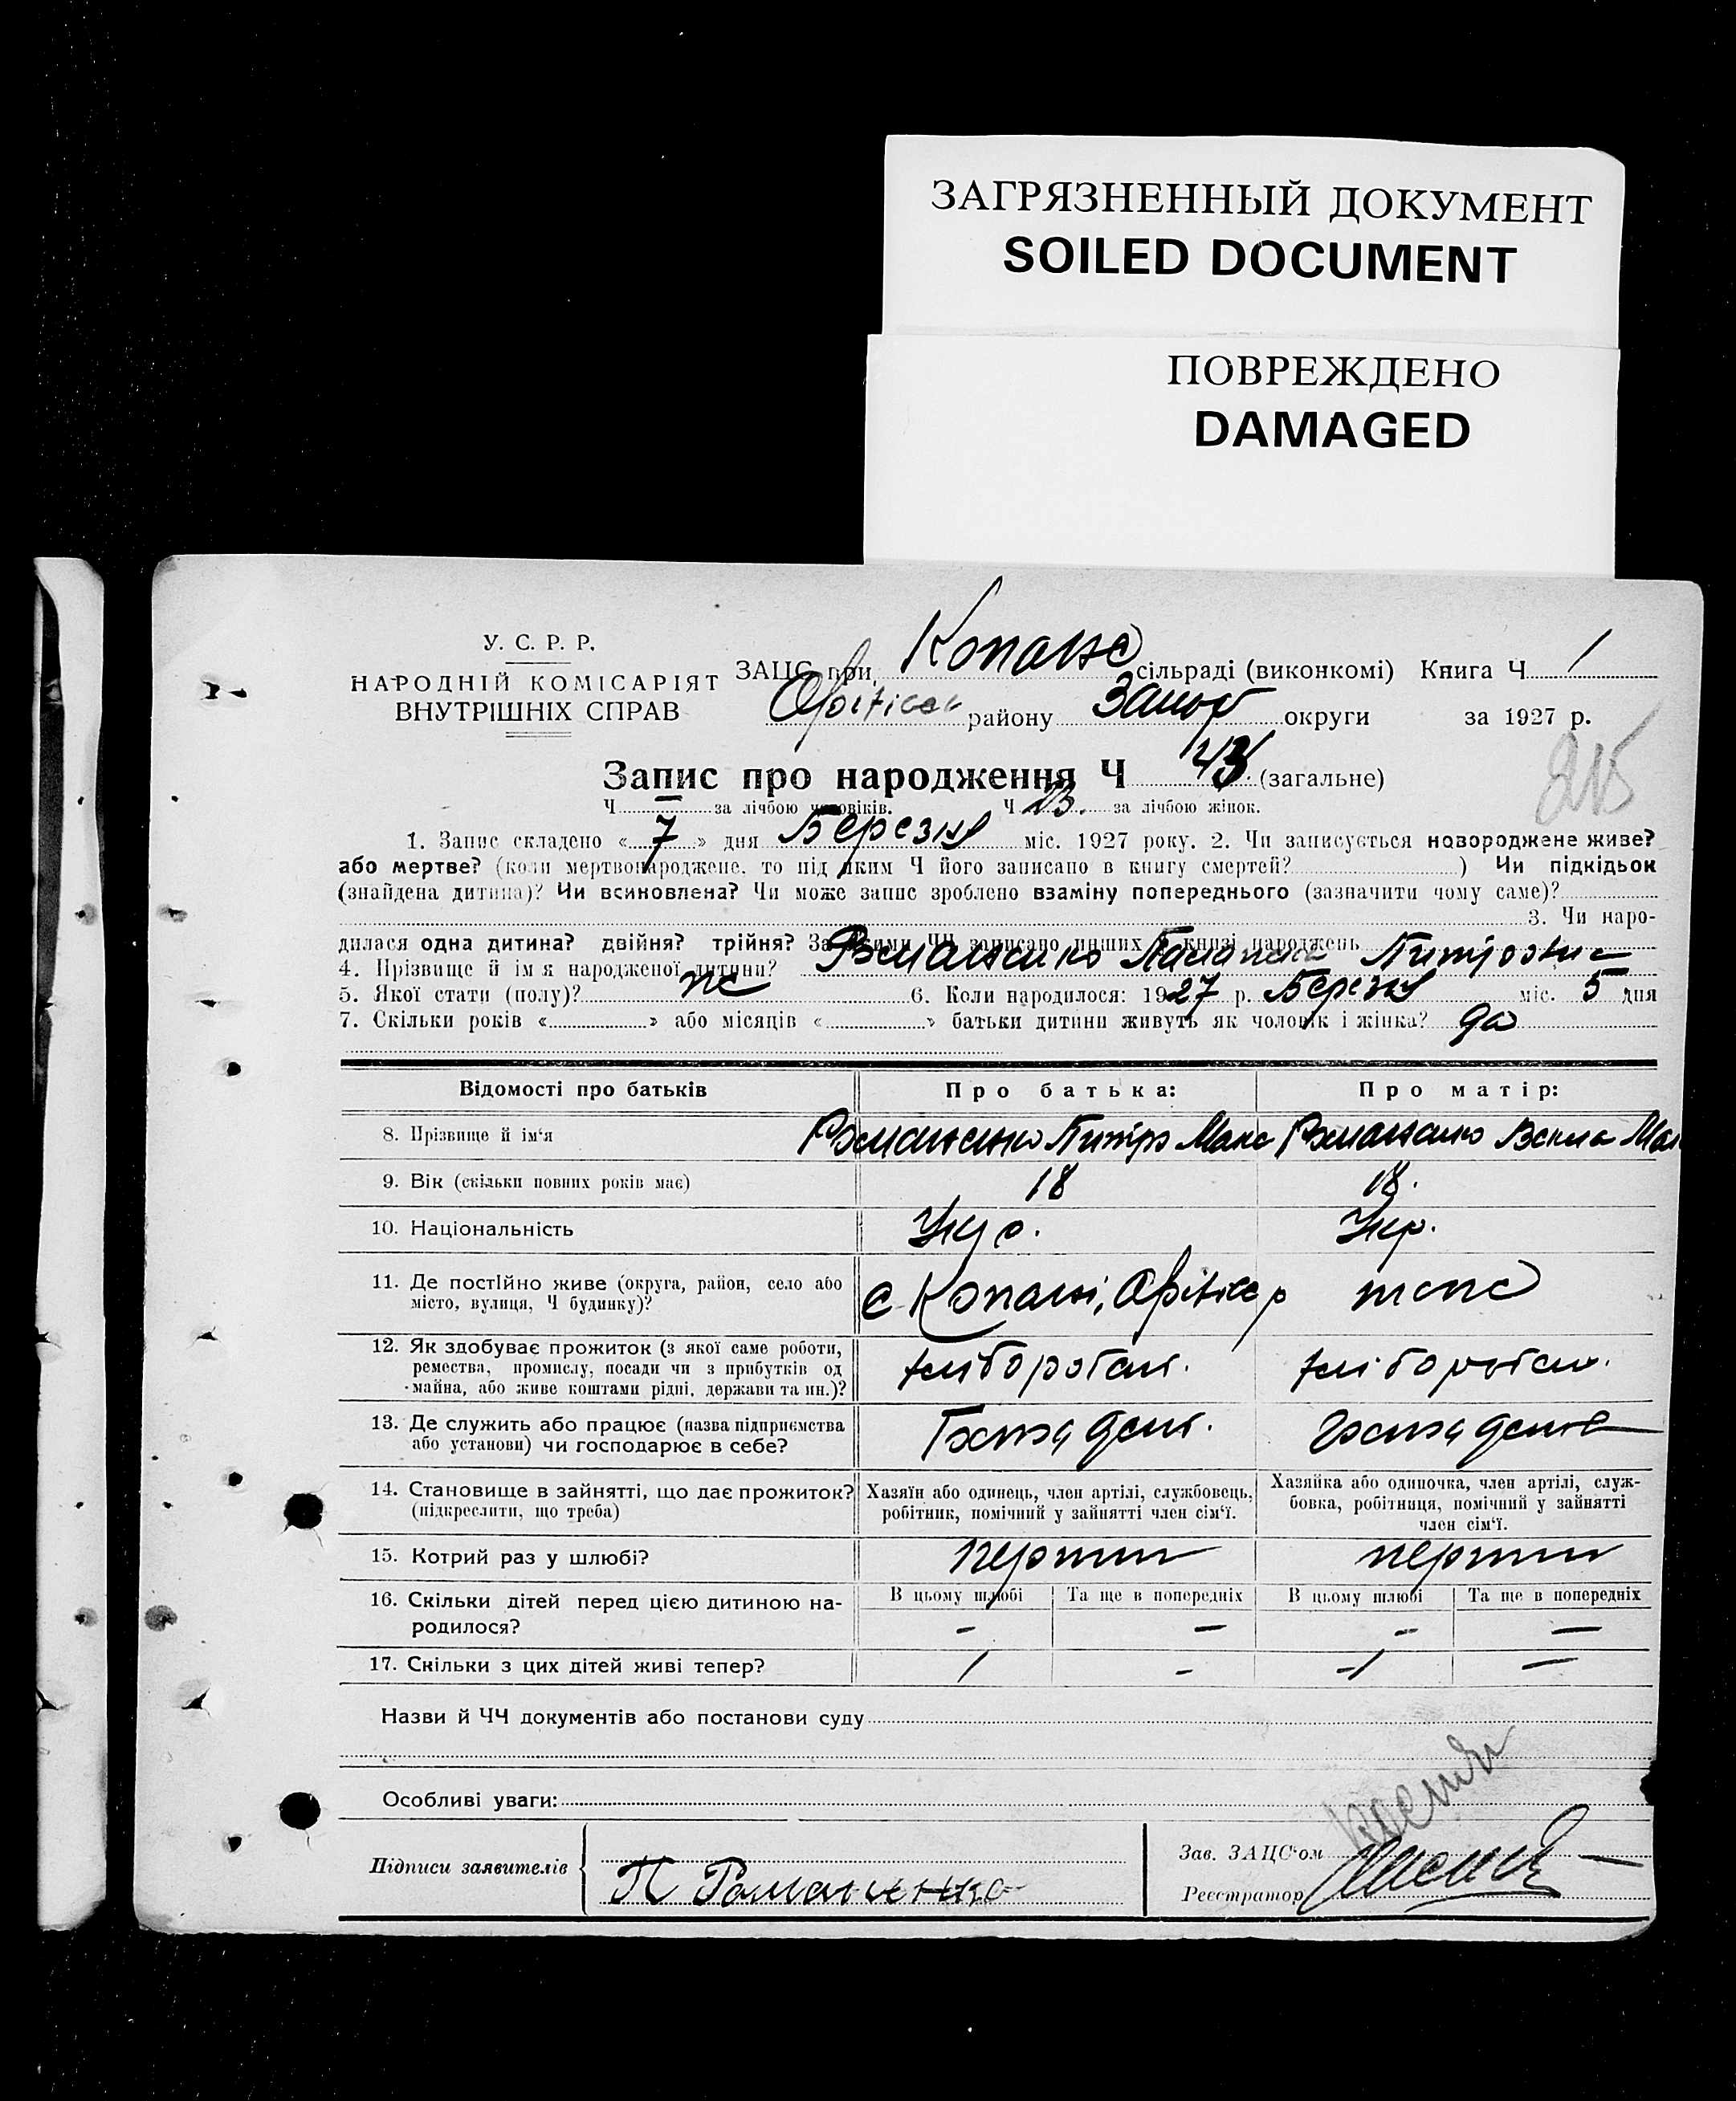 ЗАГРЯЗНЕННЫЙ ДОКУМЕНТ
SOILED DOCUMENT
ПОВРЕЖДЕНО
DAMAGED
У. С. Р. Р.
НАРОДНІЙ КОМІСАРІЯТ
ВНУТРІШНІХ СПРАВ
ЗАЦС при Копане сільраді (виконкомі) Книга Ч 1
району Запор округи за 1927 р.
215
Запис про народження Ч 43 (загальне)
Ч — за лічбою чоловіків. Ч 13. за лічбою жінок.
1. Запис складено « 7 » дня Березня міс. 1927 року. 2. Чи записується новороджене живе?
або мертве? (коли мертвонароджене, то під яким Ч його записано в книгу смертей? ) Чи підкідьок
(знайдена дитина)? Чи всиновлена? Чи може запис зроблено взаміну попереднього (зазначити чому саме)?
3. Чи наро-
дилася одна дитина? двійня? трійня? За якими ЧЧ записано инших в книзі народжень
4. Прізвище й ім'я народженої дитини? Романенко
5. Якої стати (полу)? же 6. Коли народилося: 1927 р. Березня міс. 5 дня
7. Скільки років « » або місяців « » батьки дитини живуть як чоловік і жінка? да
Відомості про батьків Про батька: Про матір:
8. Прізвище й ім'я Романенко Питро Макс Романенко Векла Мак
9. Вік (скільки повних років має) 18 18.
10. Національність Укр. Укр.
11. Де постійно живе (округа, район, село або
місто, вулиця, Ч будинку)? с Копані, Оріхісс р тапе
12. Як здобуває прожиток (з якої саме роботи,
ремества, промислу, посади чи з прибутків од
майна, або живе коштами рідні, держави та ин.)? хліборобан. хліборобан.
13. Де служить або працює (назва підприємства
або установи) чи господарює в себе?
14. Становище в зайнятті, що дає прожиток?
(підкреслити, що треба)
Хазяїн або одинець, член артілі, службовець,
робітник, помічний у зайнятті член сім'ї.
Хазяйка або одиночка, член артілі, служ-
бовка, робітниця, помічний у зайнятті
член сім'ї.
15. Котрий раз у шлюбі? перший перший
16. Скільки дітей перед цією дитиною на-
родилося?
В цьому шлюбі Та ще в попередніх В цьому шлюбі Та ще в попередніх
– – – –
17. Скільки з цих дітей живі тепер? 1 – –1 –
Назви й ЧЧ документів або постанови суду
Особливі уваги:
Підписи заявителів П Романенко
Зав. ЗАЦС'ом
Реєстратор